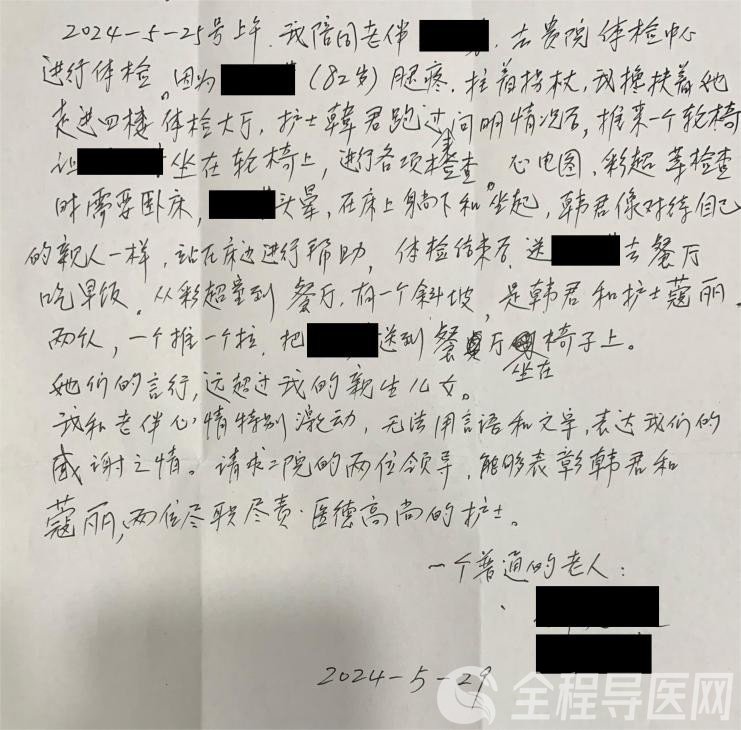 2024-5-25号上午.我陪同老伴 去贵院体检中心
进行体检。因为 (82岁)腿疼.拄着拐杖,我搀扶着她
走进四楼体检大厅,护士韩君跑过来问明情况后,推来一个轮椅
让 坐在轮椅上,进行各项检查。心电图,彩超等检查
时需要卧床, 头晕,在床上躺下和坐起,韩君像对待自己
的親人一样,站在床边进行帮助,体检结束后,送 去餐厅
吃早饭。从彩超室到餐厅.有一个斜坡,是韩君和护士蔻丽.
两个人,一个推一个拉,把 送到餐厅坐在椅子上。
她们的言行,远超过我的親生儿女。
我和老伴心情特别激动,无法用言语和文字,表达我们的
感谢之情。请求二院的两位领导,能够表彰韩君和
蔻丽,两位尽职尽责·医德高尚的护士。
一个普通的老人:
2024-5-29
全程导医网